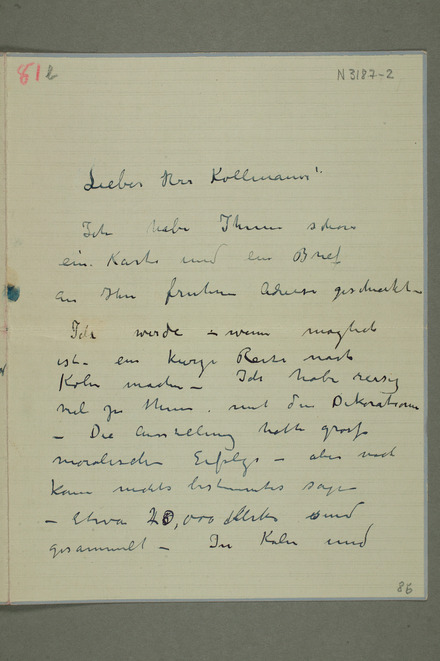 81b
N 3187-2
Lieber Herr Kollmann"
Ich habe Ihnen schon
ein. Karte und ein Brief
an Ihre fruhere Adresse geschickt -
Ich werde - wenn moglich
ist - ein kurze Reise nach
Koln machen - Ich habe riesig
viel zu thun. mit den Dekorationen
- Die Ausstellung hatte grosse
moralischen Erfolge - aber noch
kann nichts bestimmtes sagen
- Etwa 20,000 sind
gesammelt - In Koln und
86